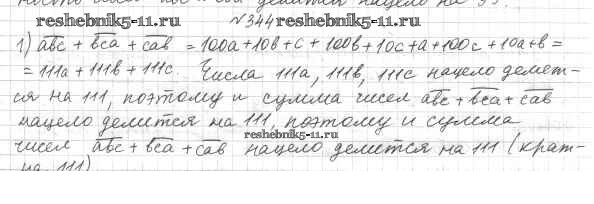 reshebnik5-11.ru №344 reshebnik5-11.ru
1) abc + bca + cab = 100a+10b+c + 100b+10c+a+100c+10a+b =
= 111a + 111b + 111c. Числа 111a, 111b, 111c нацело делит-
ся на 111, поэтому и сумма чисел abc + bca + cab
нацело делится на 111, поэтому и сумма
reshebnik5-11.ru
чисел abc + bca + cab нацело делится на 111 (крат-
на 111)